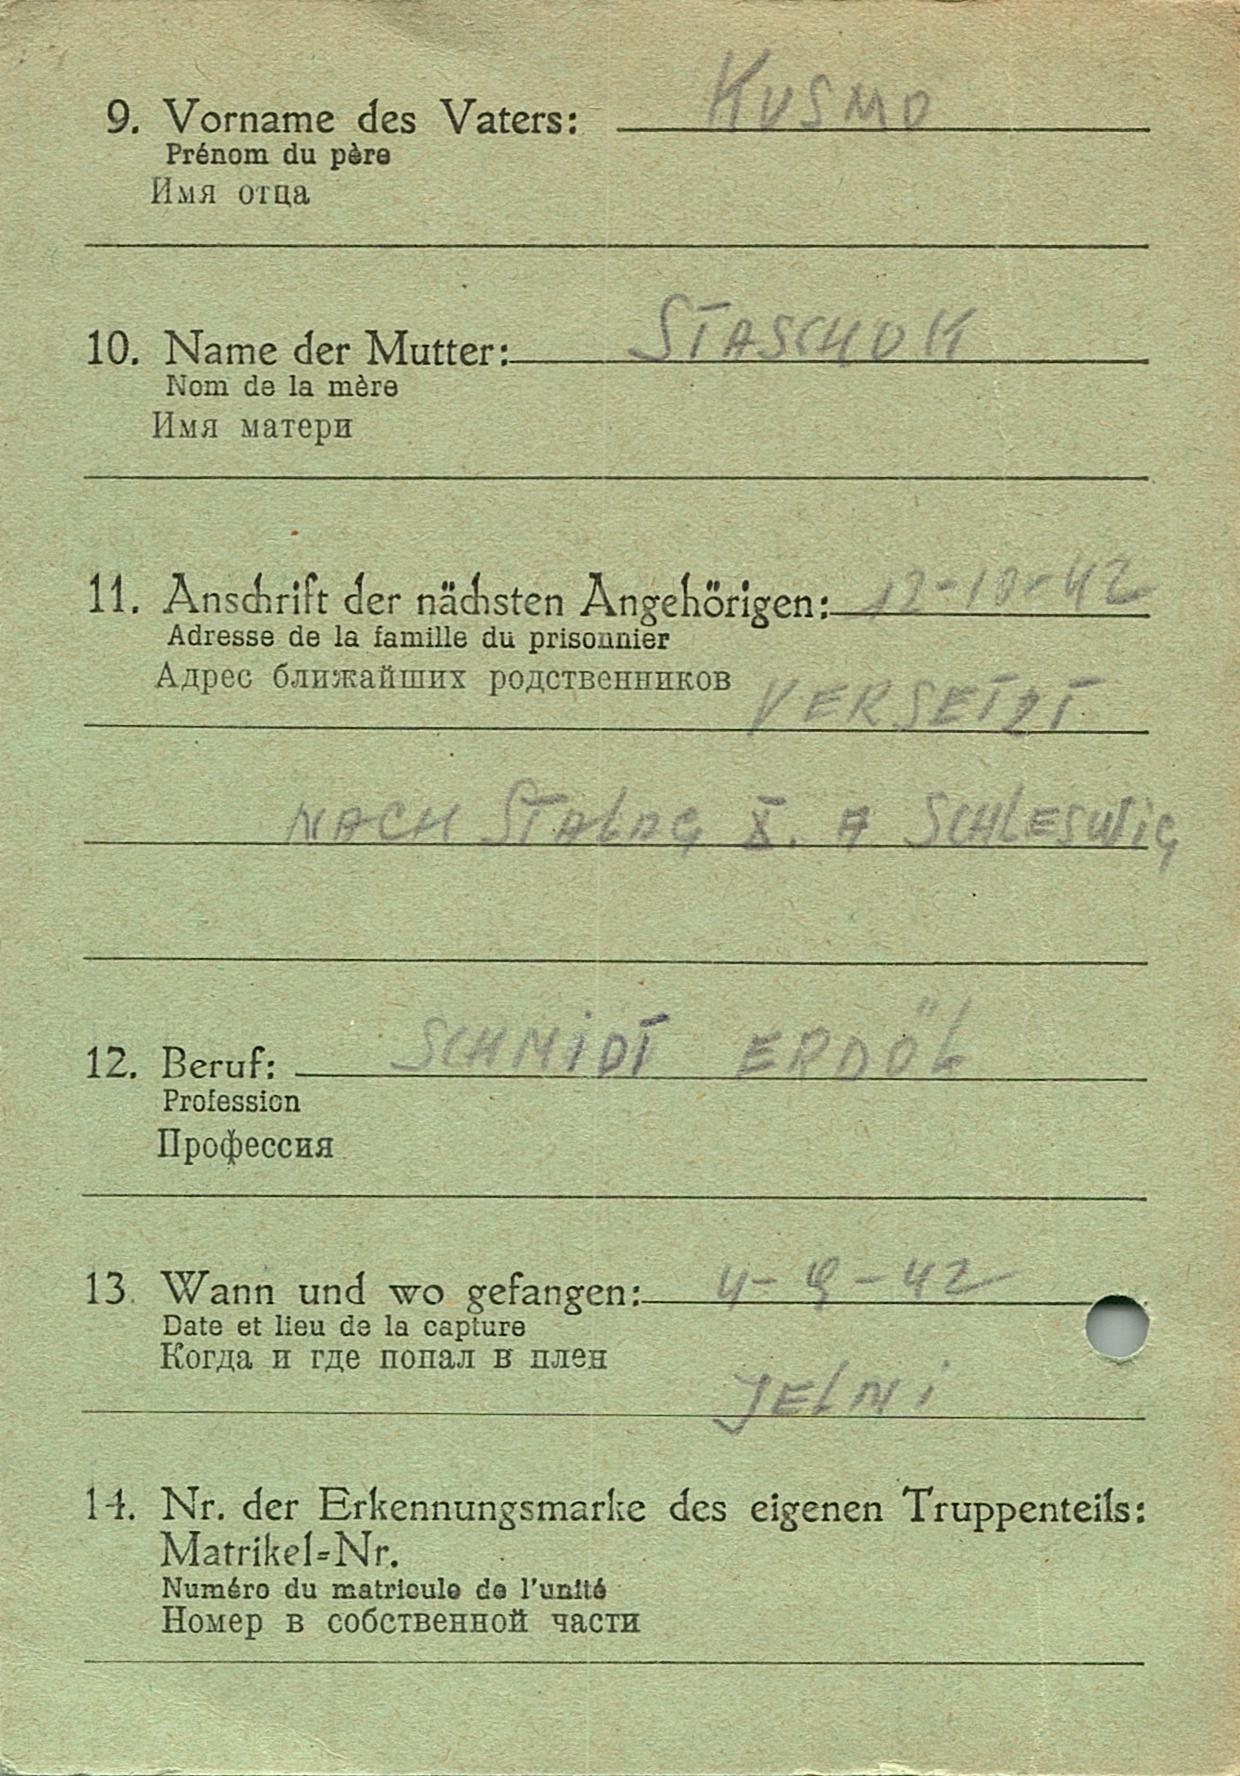 9. Vorname des Vaters: KUSMO
Prénom du père
Имя отца
10. Name der Mutter: STASCHOK
Nom de la mère
Имя матери
11. Anschrift der nächsten Angehörigen: 12-10-42
Adresse de la famille du prisonnier
Адрес ближайших родственников
VERSETZT
NACH STALAG X. A SCHLESWIG
12. Beruf: SCHMIDT ERDÖL
Profession
Профессия
13. Wann und wo gefangen: 4-9-42
Date et lieu de la capture
Когда и где попал в плен
JELNI
14. Nr. der Erkennungsmarke des eigenen Truppenteils:
Matrikel=Nr.
Numéro du matricule de l'unité
Номер в собственной части